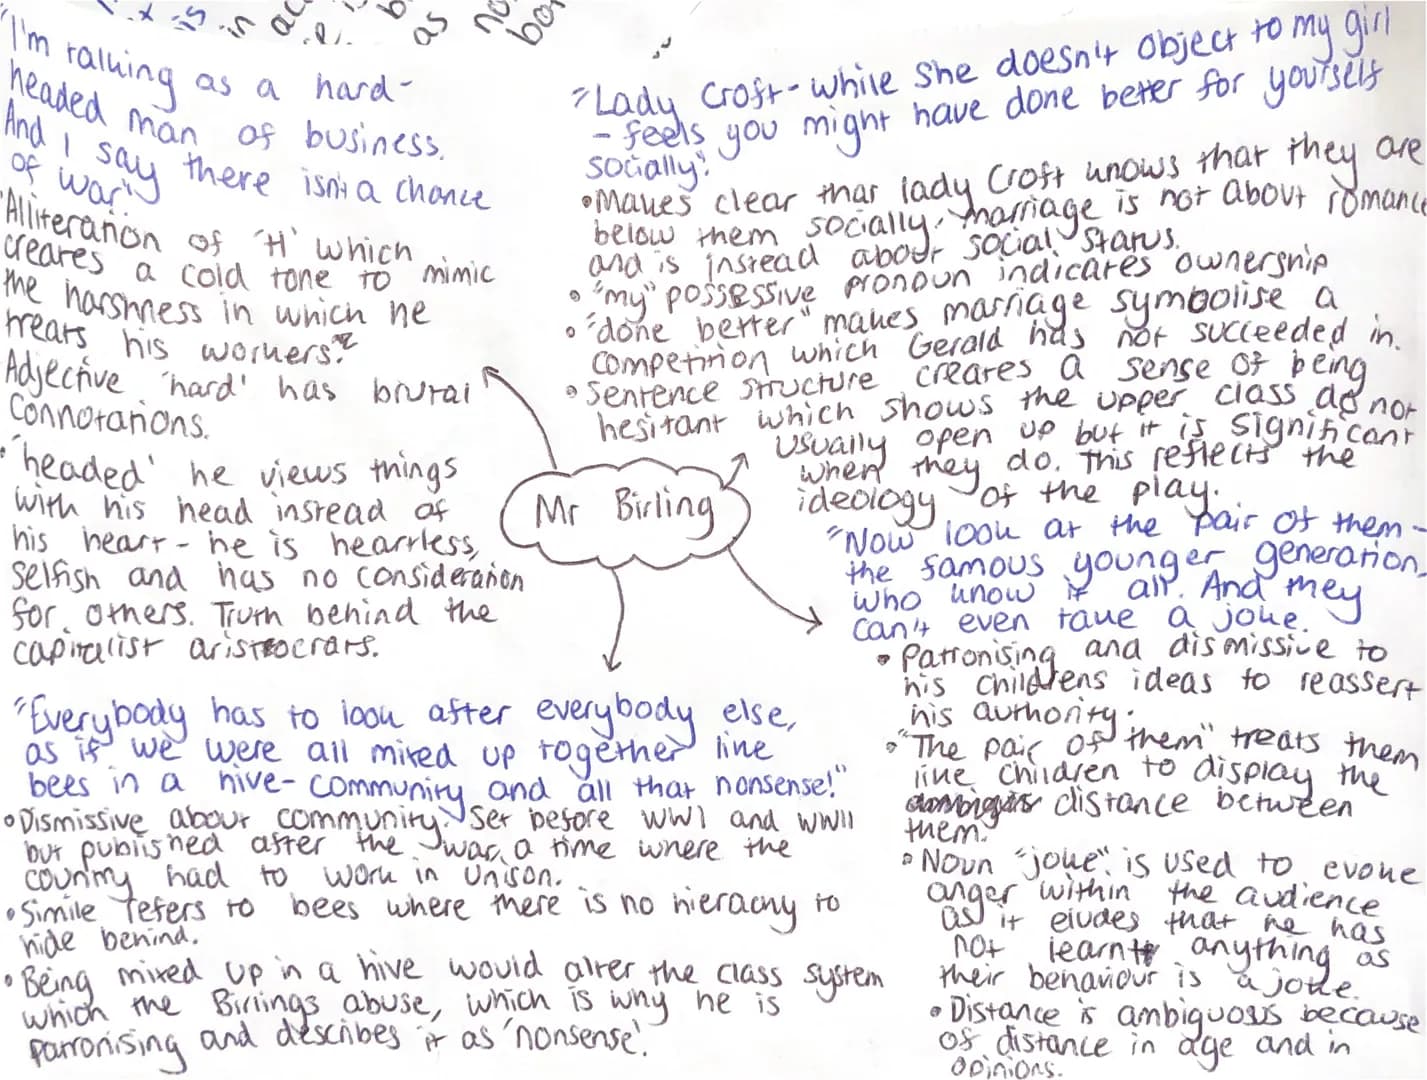 "I'm talking as a hard-
headed man of business.
And I say there isn't a chance
of war"
Alliteration of 'H' which
creates a cold tone to mimic
the harshness in which he
treats his workers.
Adjective 'hard' has brutal
connotations.
• 'headed' he views things
with his head instead of
his heart - he is heartless,
selfish and has no consideration
for others. Truth behind the
capitalist aristocrats.
"Lady Croft - while she doesn't object to my girl
- feels you might have done better for yourself
socially".
• Makes clear that lady Croft knows that they are
below them socially. Marriage is not about romance
and is instead about social status.
• "my" possessive pronoun indicates ownership
• "done better" makes marriage symbolise a
competition which Gerald has not succeeded in.
• Sentence structure creates a sense of being
hesitant which shows the upper class do not
usually open up but it is significant
when they do. This reflects the
ideology of the play.
Mr Birling
"Now look at the pair of them -
the famous younger generation
who know it all. And they
can't even take a joke.
• Patronising and dismissive to
his childrens ideas to reassert
his authority.
• "The pair of them" treats them
like children to display the
distance between
them.
• Noun "joke" is used to evoke
anger within the audience
as it eludes that he has
not learnt anything as
their behaviour is a joke.
• Distance is ambiguous because
of distance in age and in
opinions.
"Everybody has to look after everybody else,
as if we were all mixed up together like
bees in a hive - community and all that nonsense!"
• Dismissive about community. Set before WWI and WWII
but published after the war, a time where the
country had to work in unison.
• Simile refers to bees where there is no hierachy to
hide behind.
• Being mixed up in a hive would alter the class system
which the Birlings abuse, which is why he is
patronising and describes it as 'nonsense'.